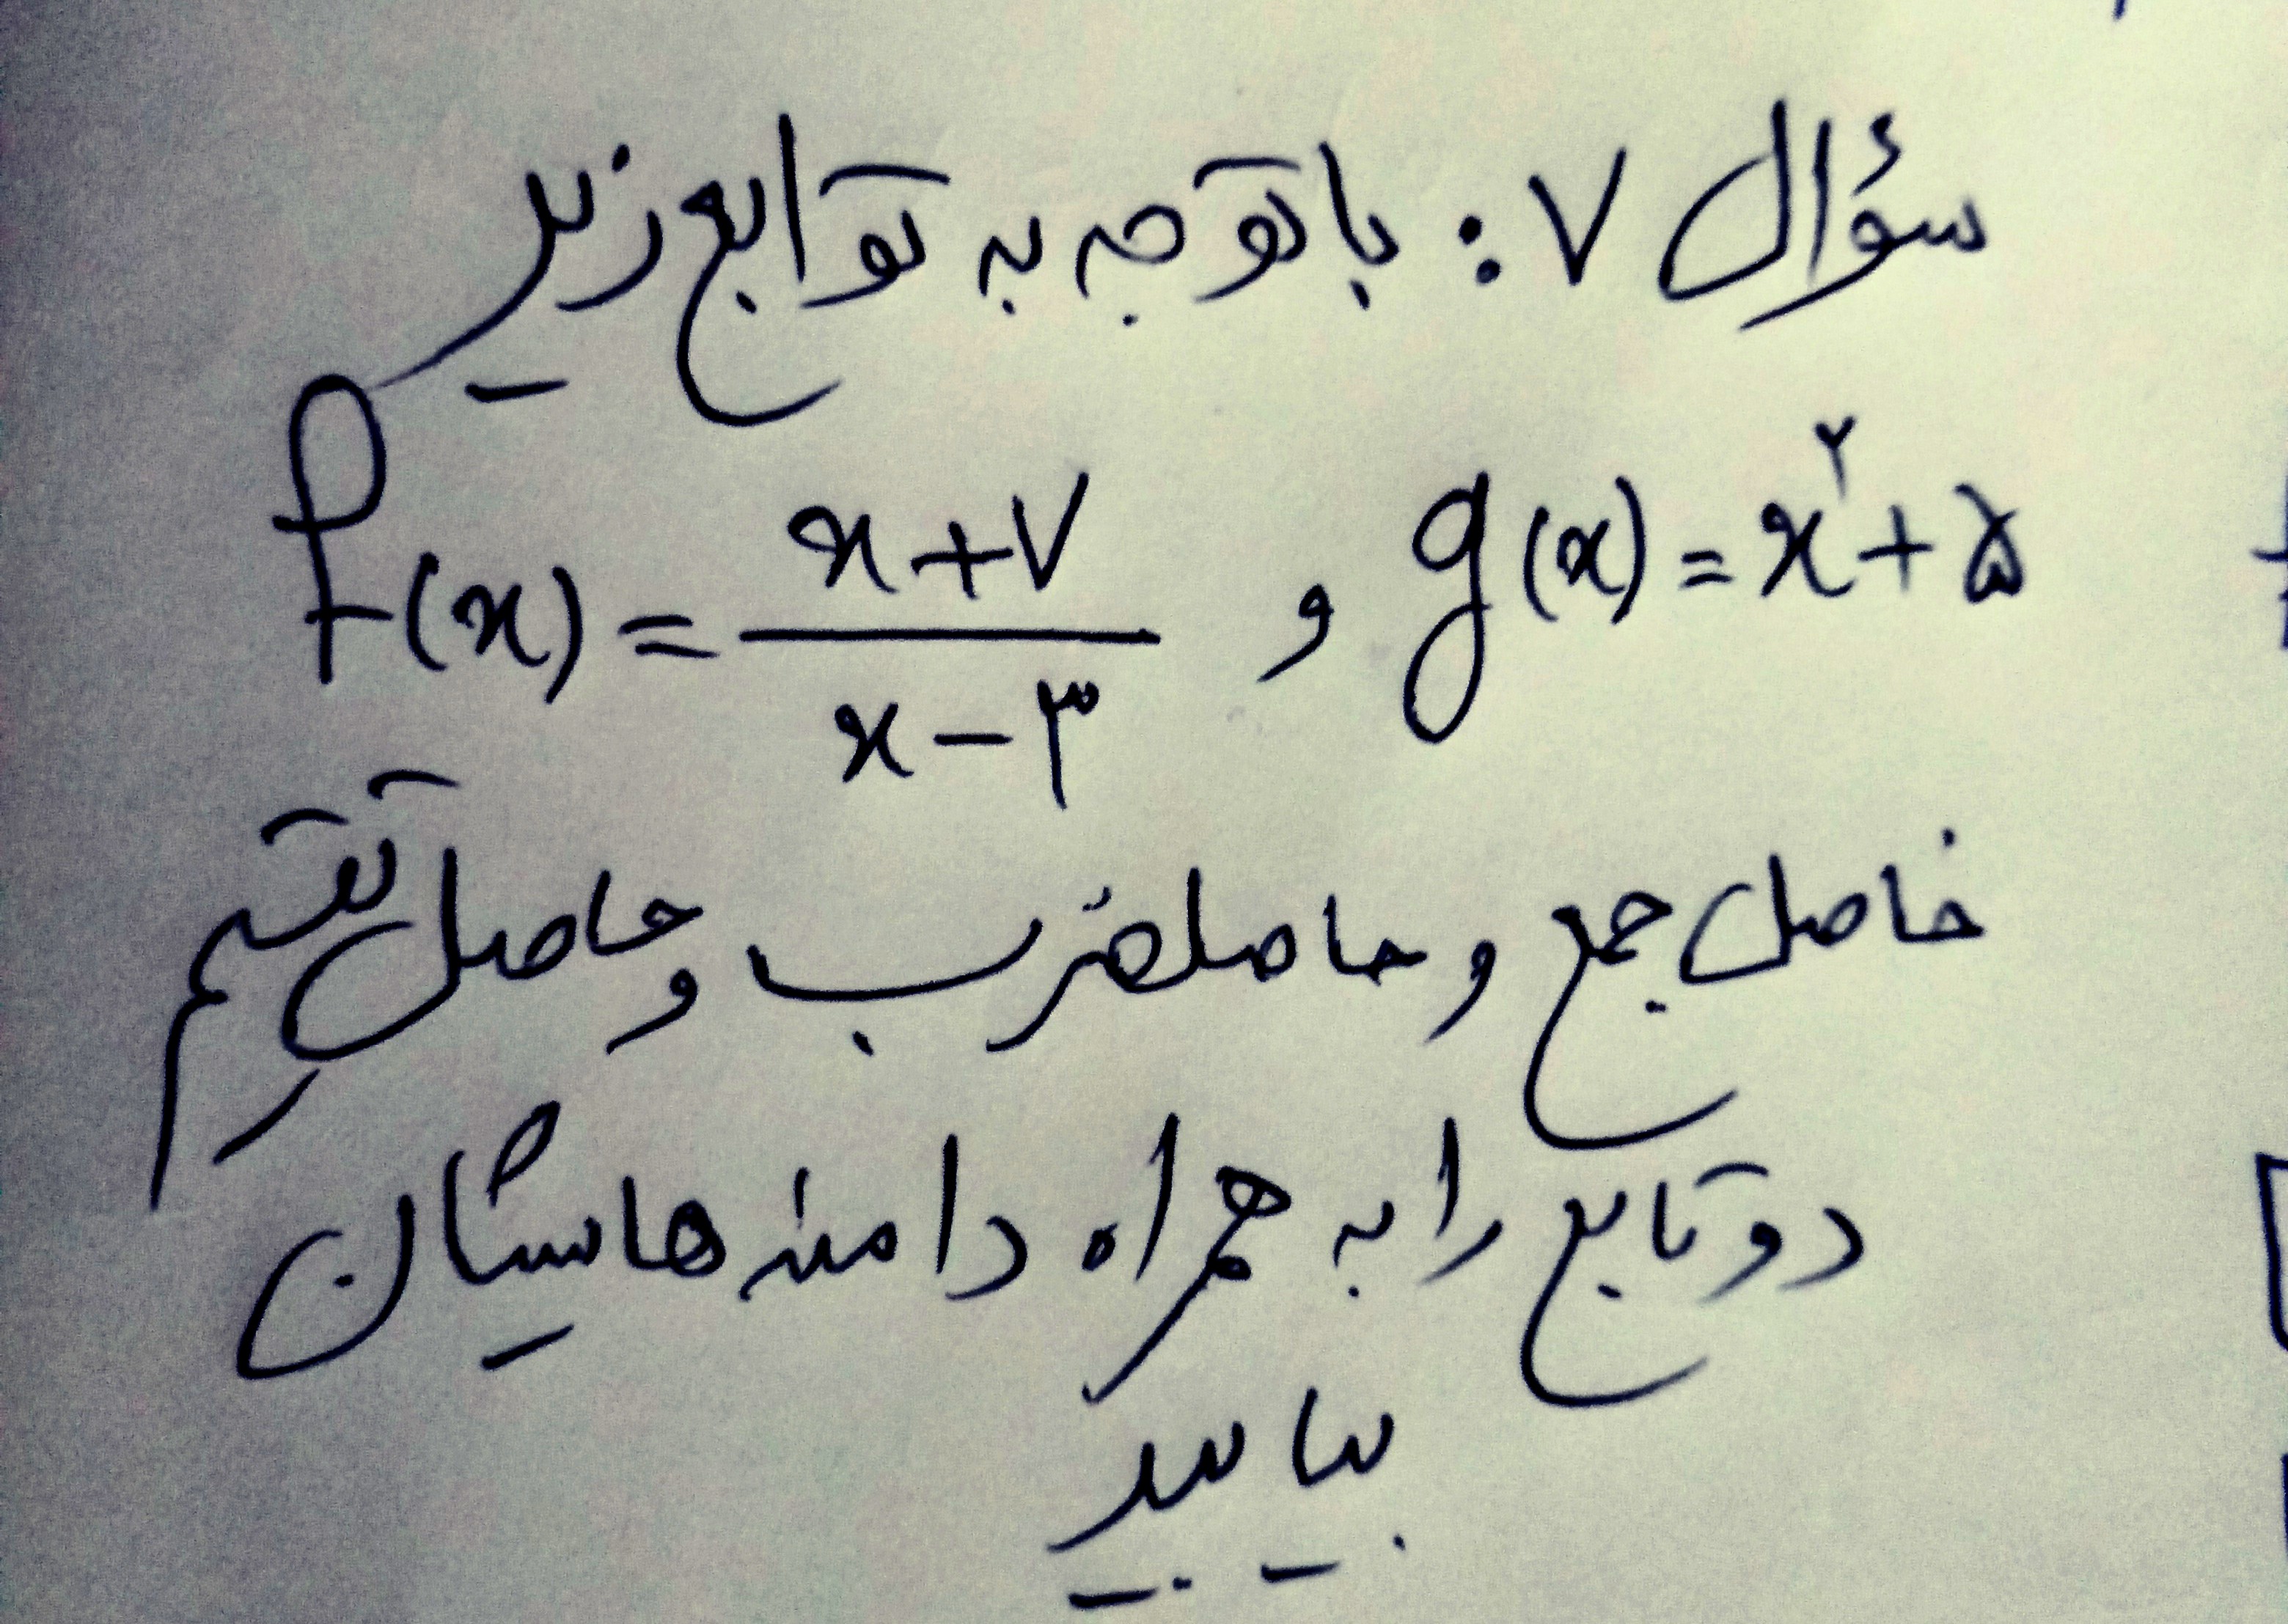 سؤال ۷: با توجه به توابع زیر
f(x) = (x+۷)/(x-۳) و g(x) = x^۲+۵
حاصل جمع و حاصلضرب و حاصل تقسیم
دو تابع را به همراه دامنه هایشان
بیابید